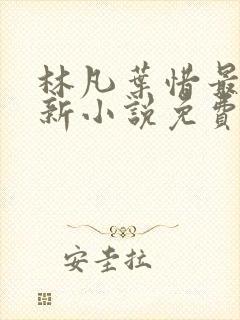 林凡葉惜最
新小說免費
安圭拉